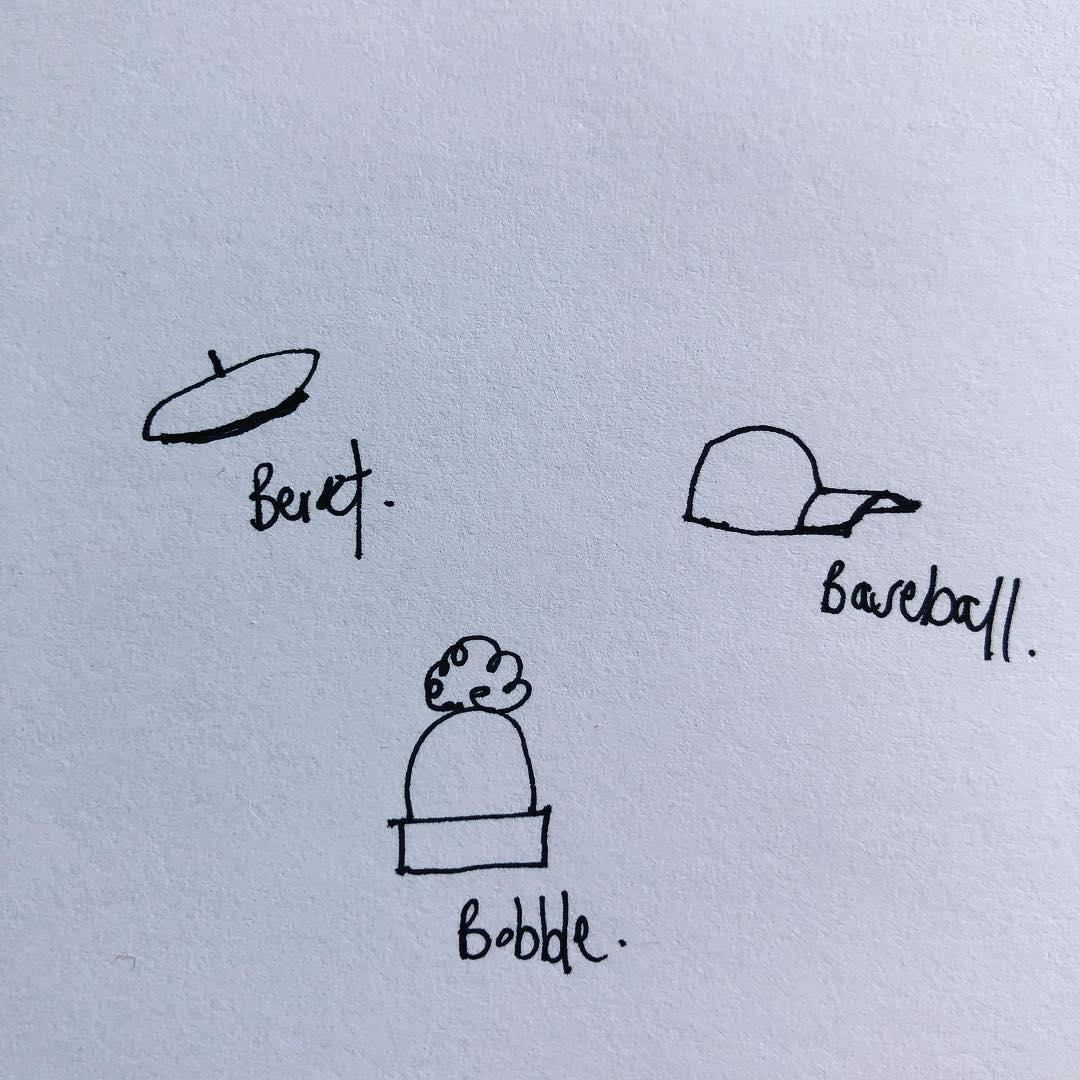 Beret.
Baseball.
Bobble.